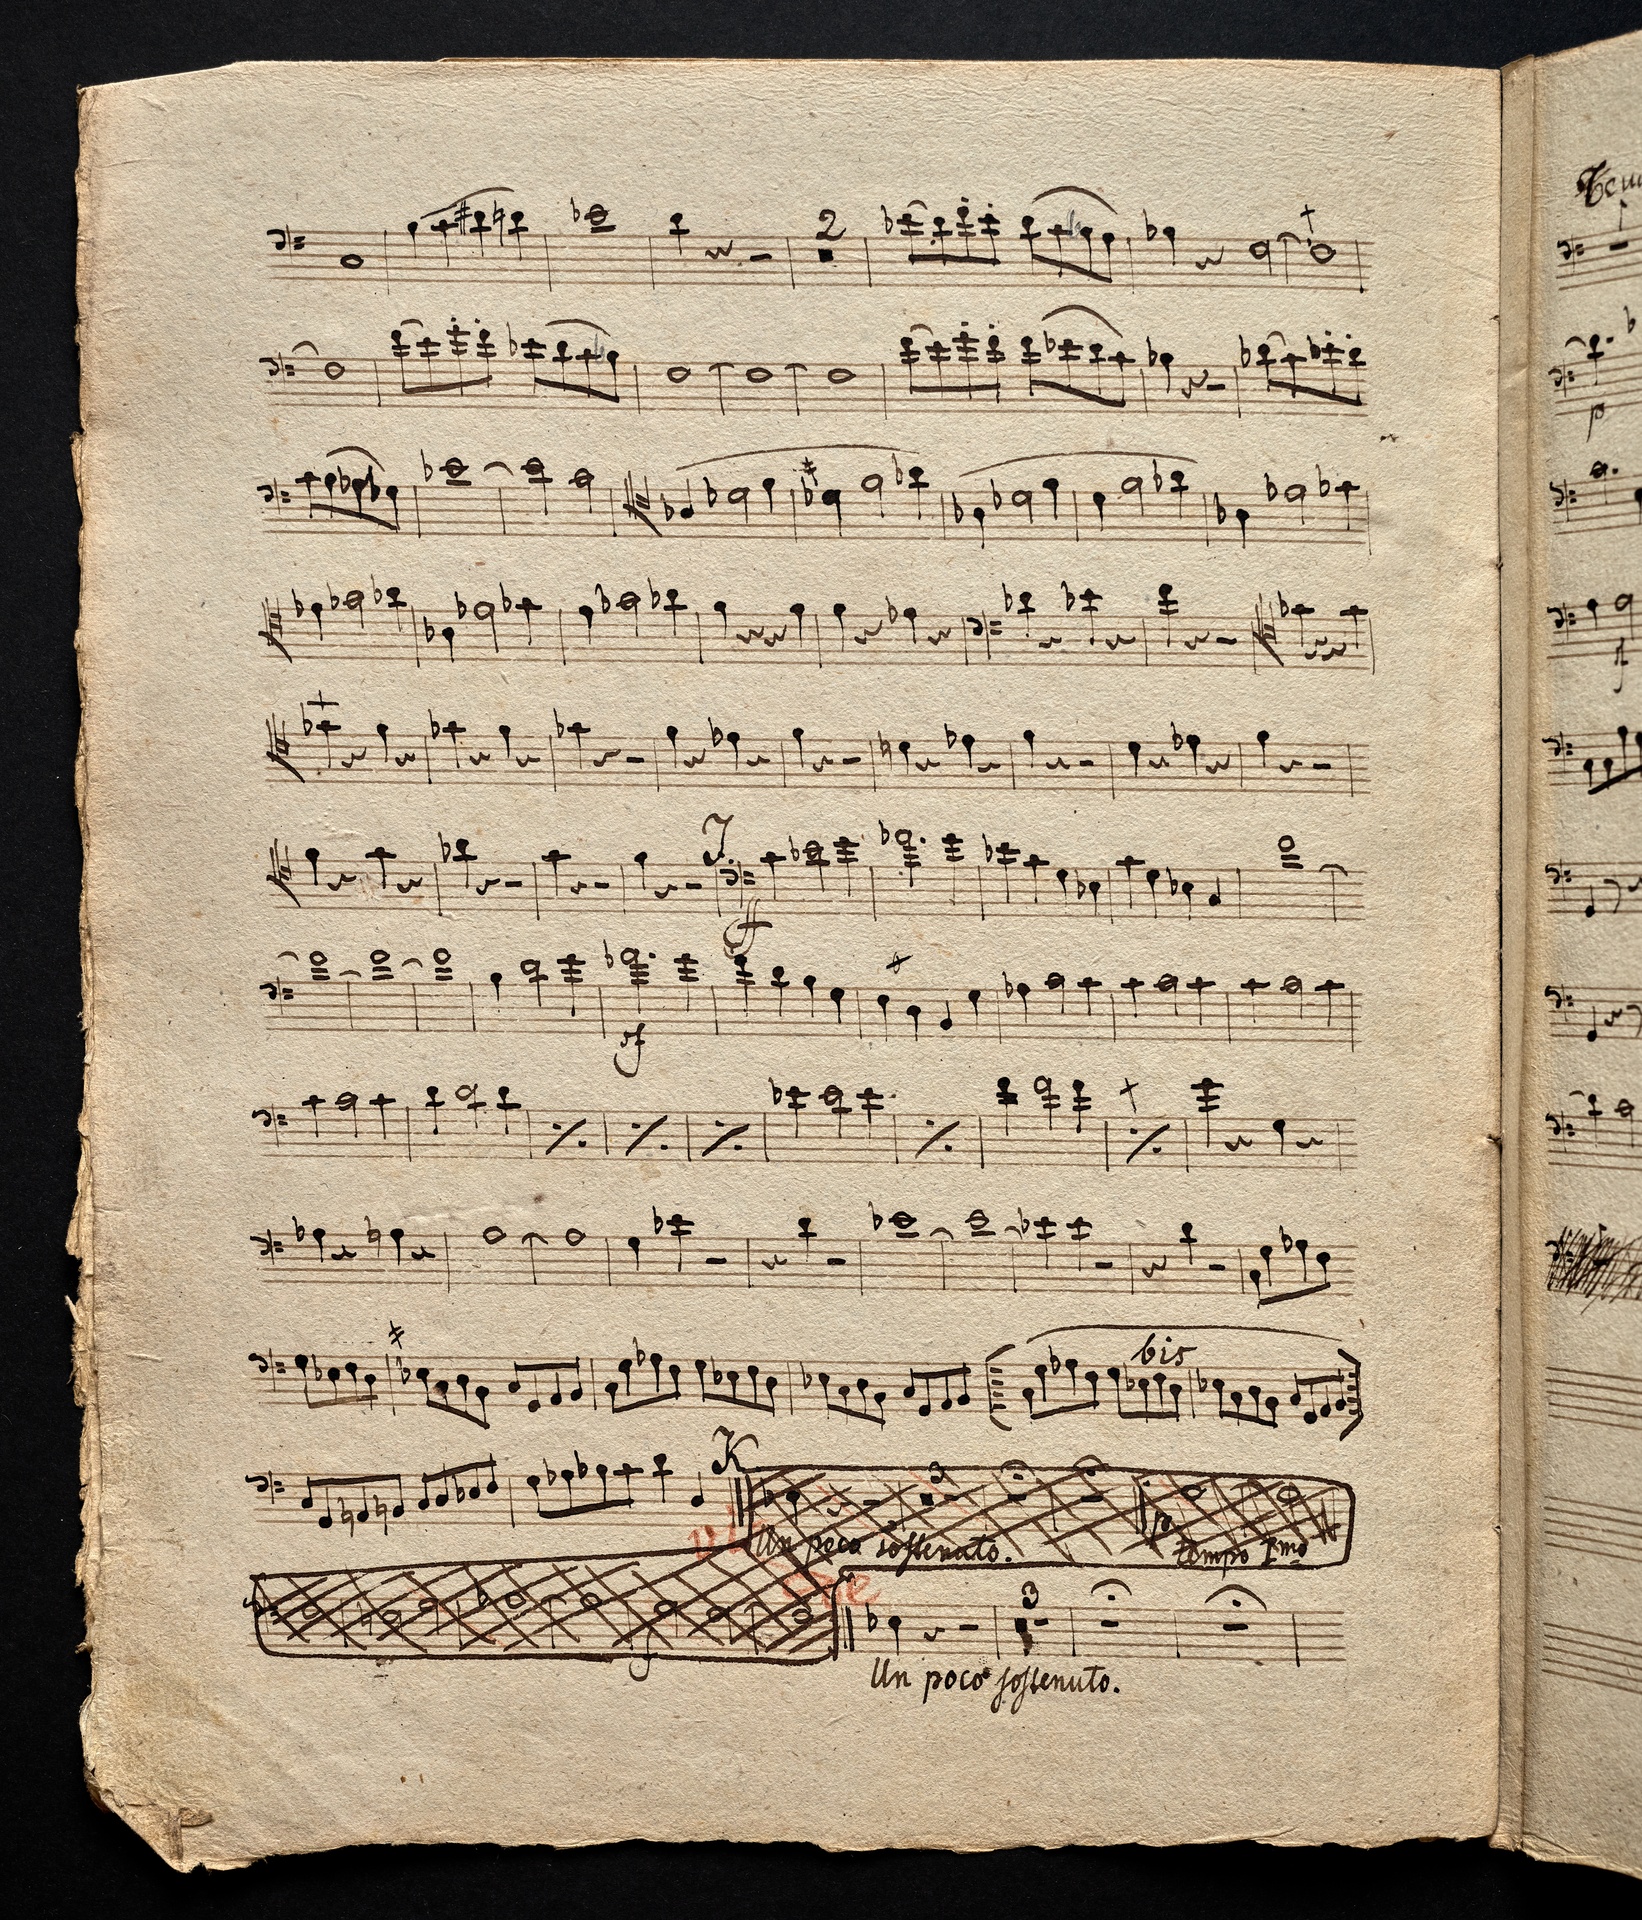 2
J.
ff
sf
bis
K
3
Un poco sostenuto.
p
tempo Imo
f
3
Un poco sostenuto.
p